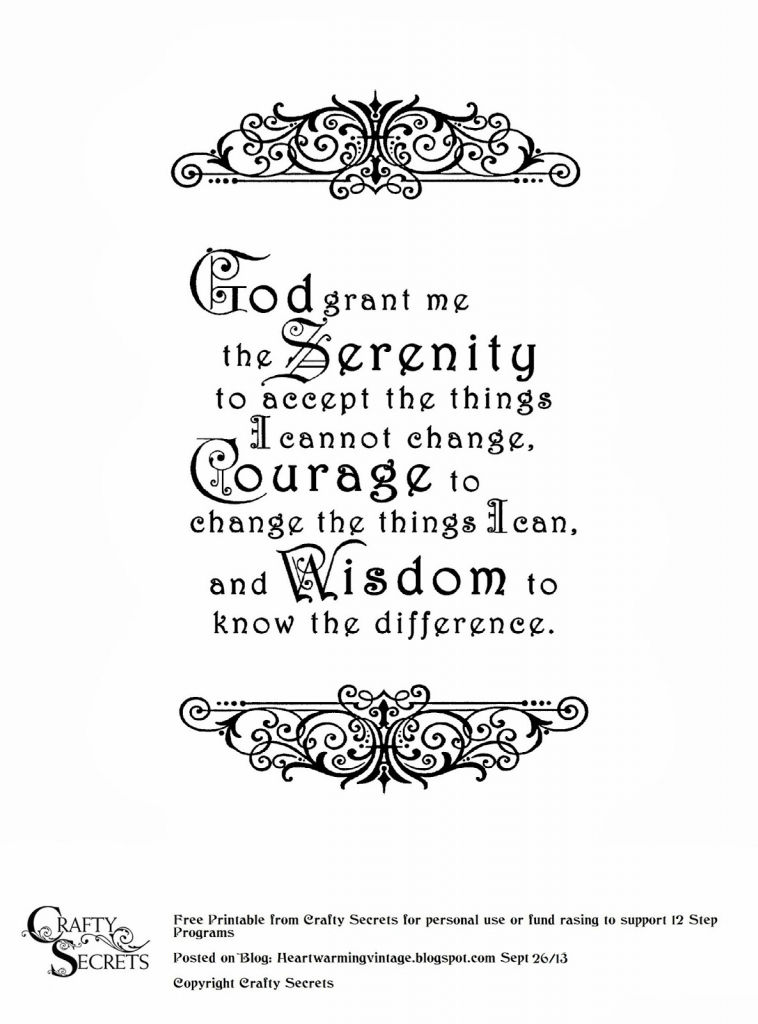 God grant me
the Serenity
to accept the things
I cannot change,
Courage to
change the things I can,
and Wisdom to
know the difference.
CRAFTY
SECRETS
Free Printable from Crafty Secrets for personal use or fund rasing to support 12 Step
Programs
Posted on Blog: Heartwarmingvintage.blogspot.com Sept 26/13
Copyright Crafty Secrets